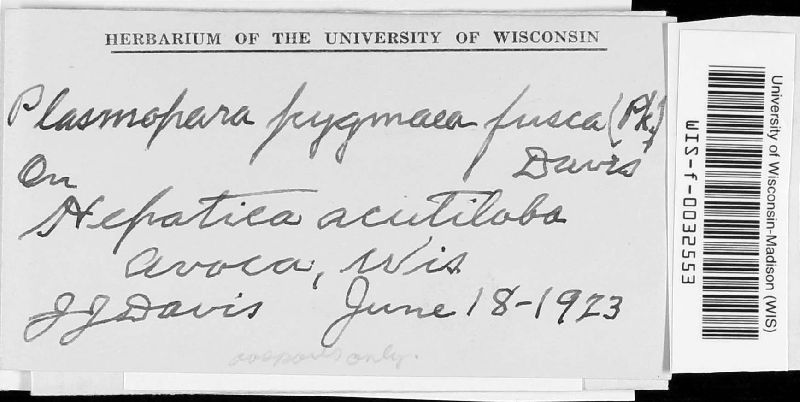 HERBARIUM OF THE UNIVERSITY OF WISCONSIN
Plasmopara pygmaea fusca (Pk.)
Davis
On
Hepatica acutiloba
Avoca, Wis
JJ Davis June 18-1923
oospores only.
University of Wisconsin-Madison (WIS)
WIS-f-0032553